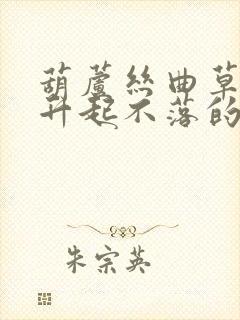 葫蘆絲曲草
升起不落的
朱宗英